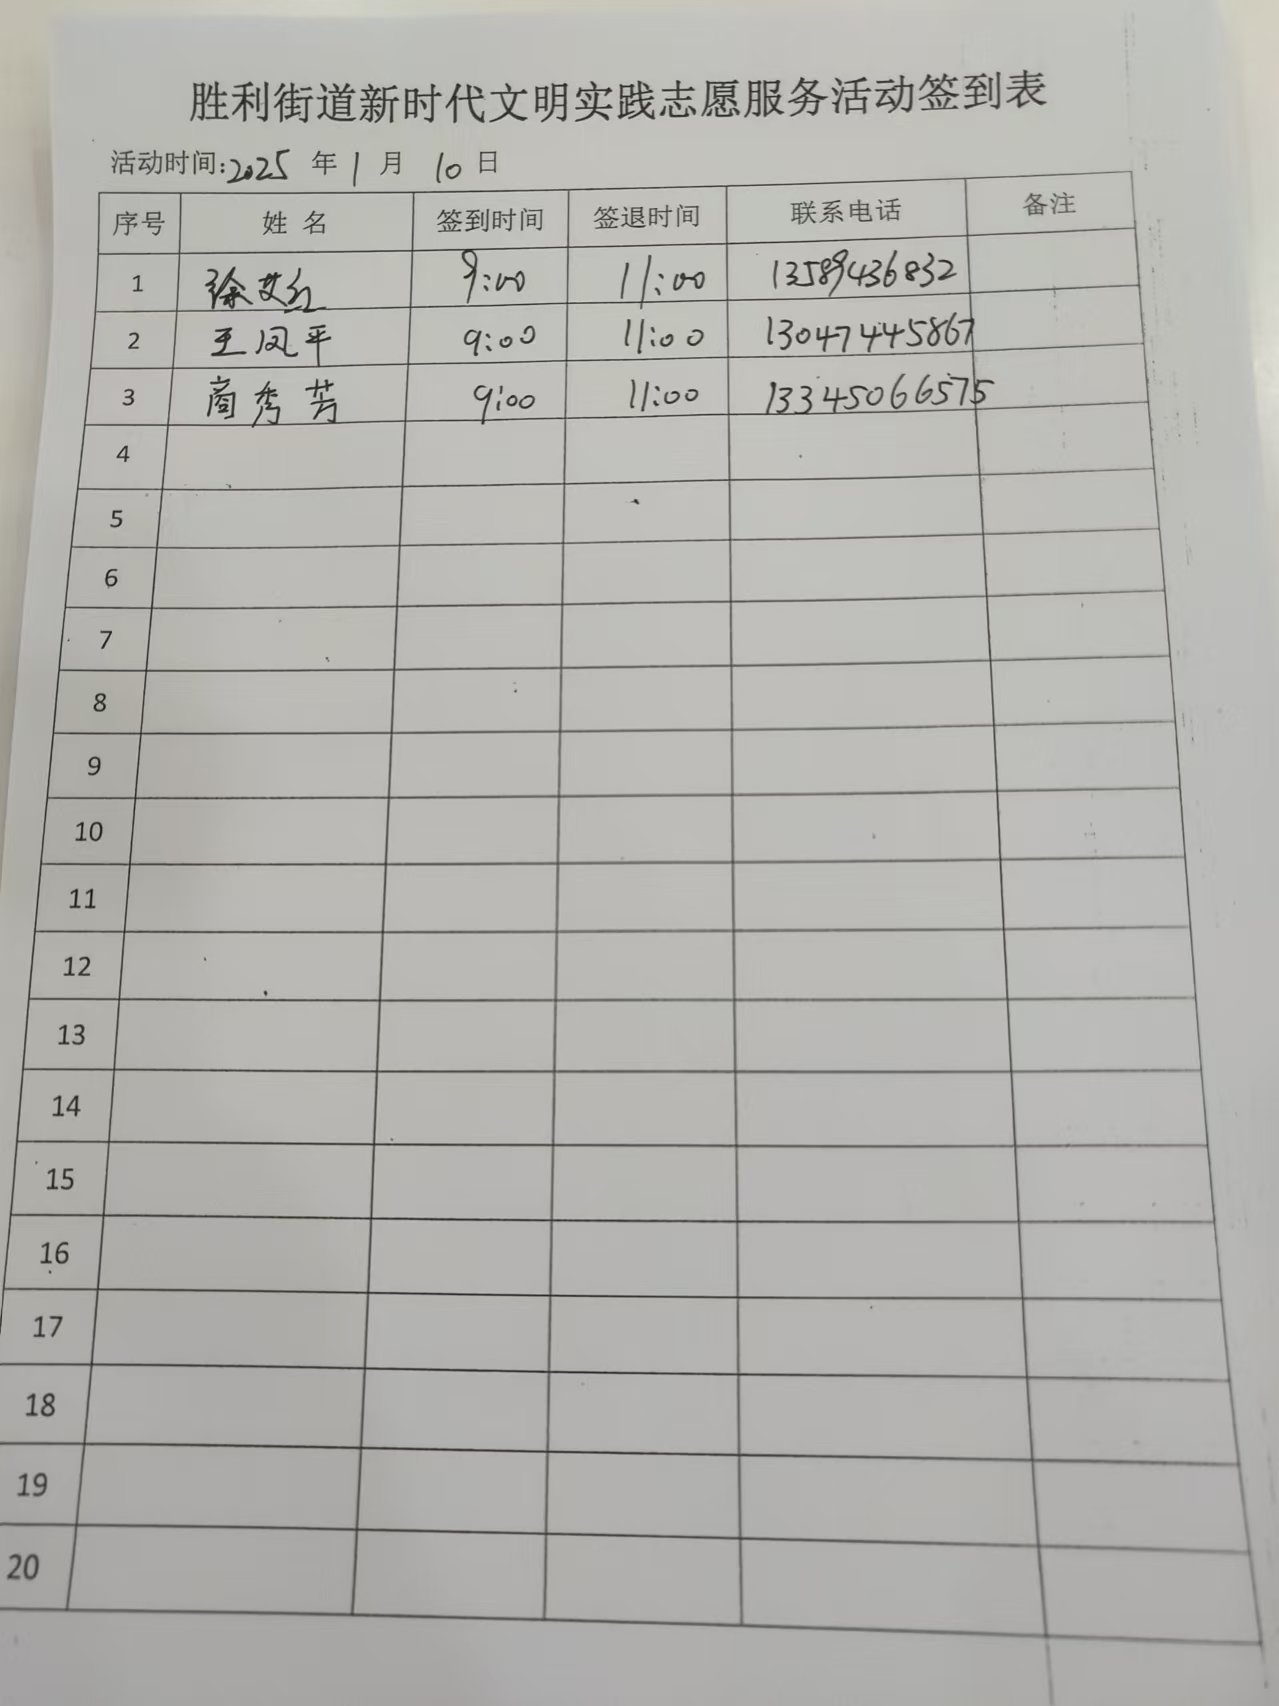 胜利街道新时代文明实践志愿服务活动签到表
活动时间:2025 年 1 月 10 日
序号 姓 名 签到时间 签退时间 联系电话 备注
1 徐艾红 9:00 11:00 13589436832
2 王凤平 9:00 11:00 13047445867
3 商秀芳 9:00 11:00 13345066575
4
5
6
7
8
9
10
11
12
13
14
15
16
17
18
19
20